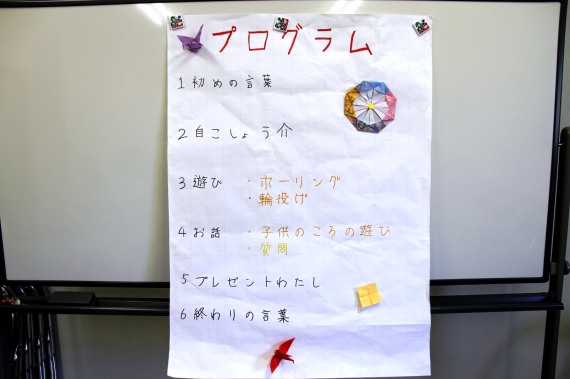 プログラム
1 初めの言葉
2 自こしょう介
3 遊び ・ボーリング
・輪投げ
4 お話 ・子供のころの遊び
・質問
5 プレゼントわたし
6 終わりの言葉